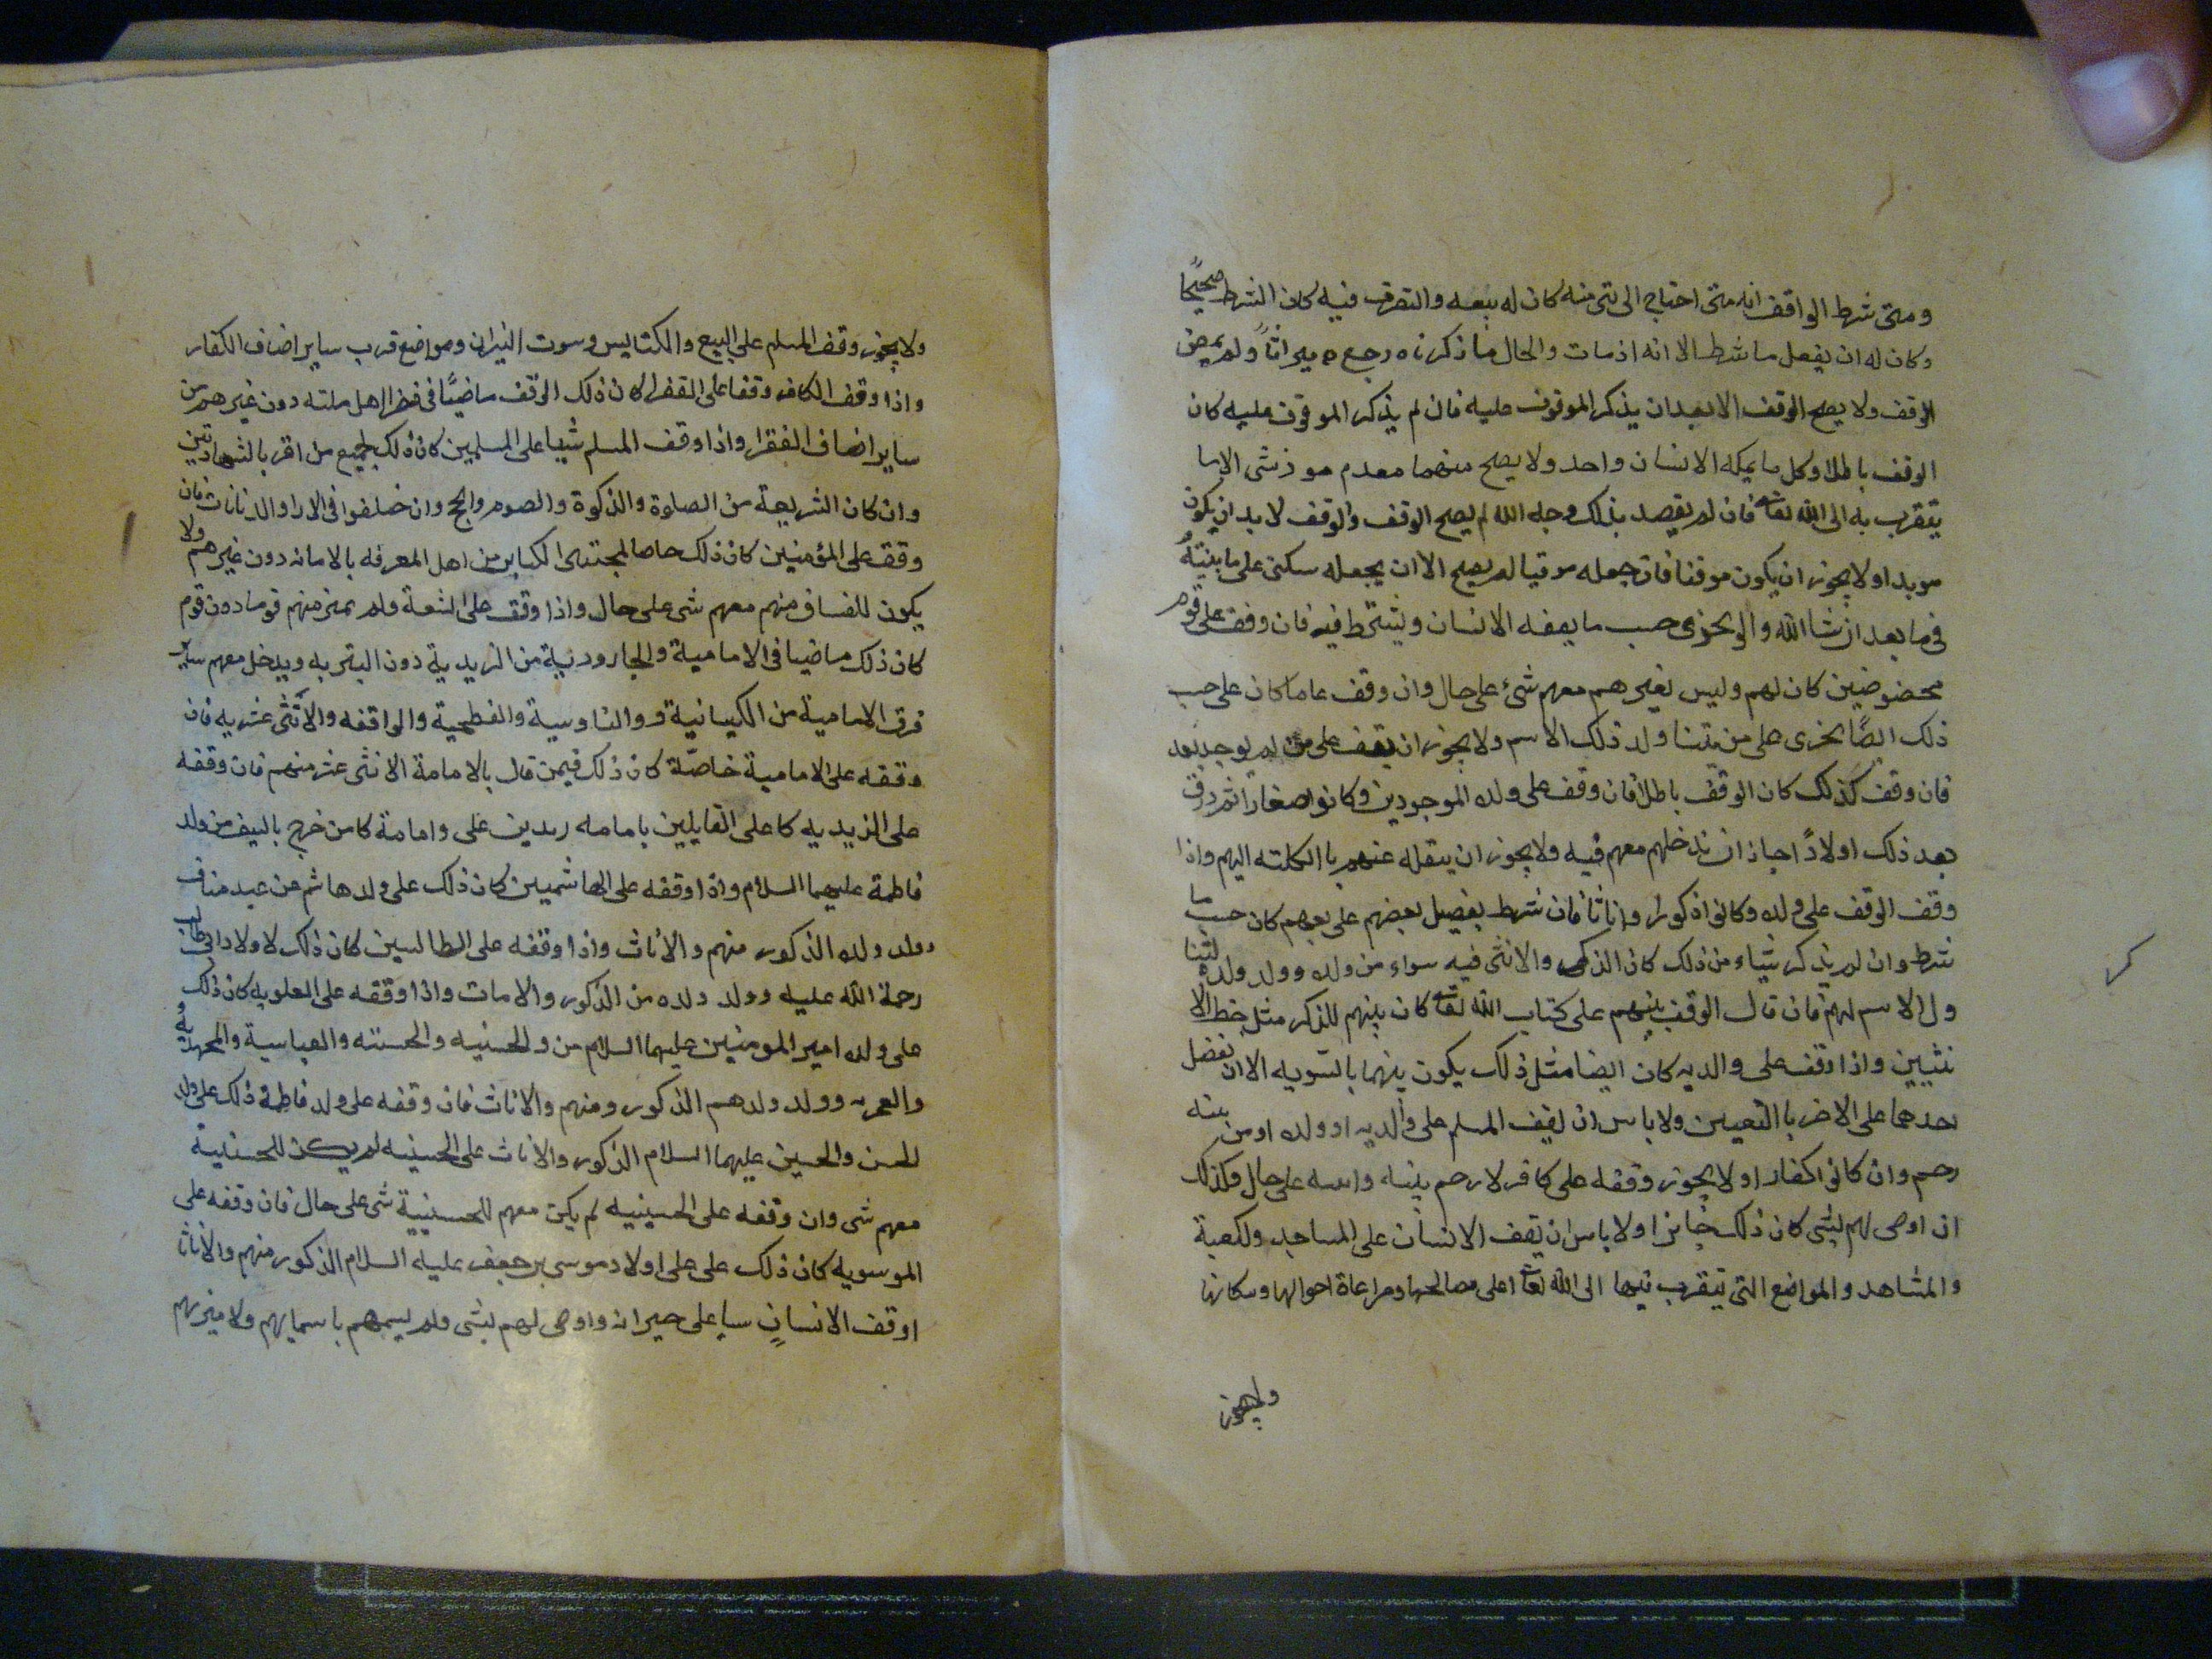 ومتى شرط الواقف انه متى احتاج الى شى منه كان له بيعه والتصرف فيه كان الشرط صحيحًا
وكان له ان يفعل ما شرط الا انه اذ مات والحال ما ذكرناه رجع ميراثاً ولم يمض
الوقف ولا يصح الوقف الا بعد ان يذكر الموقوف عليه فان لم يذكر الموقوف عليه كان
الوقف باطلا وكل ما يملكه الانسان واحد ولا يصح منهما معدم شى الا بما
يتقرب به الى الله تعا فان لم يقصد بذلك وجه الله لم يصح الوقف والوقف لا بد ان يكون
موبدا ولا يجوز ان يكون موقتا فان جعله موقتا لم يصح الا ان يجعله سكنى على ما بينته
فى ما بعد ان شا الله والو يجرى حسب ما يقفه الانسان ويشترط فيه فان وقف على قوم
مخصوصين كان لهم وليس لغيرهم معهم شئ على حال وان وقف عاما كان على حسب
ذلك ايضًا يجرى على من يتناول ذلك الاسم ولا يجوز ان يقف على من لم يوجد بعد
فان وقف كذلك كان الوقف باطلا فان وقف على ولده الموجودين وكانوا صغاراً ثم رزق
بعد ذلك اولادًا جاز ان يدخلهم معهم فيه ولا يجوز ان ينقله عنهم با الكلته اليهم واذا
وقف الوقف على ولده وكانوا ذكورا واناثا فان شرط بفضيل بعضهم على بعضهم كان حسب ما
شرط وان لم يذكر شياء من ذلك كان الذكر والانثى فيه سواء من ولده وولد ولده لتنا
ول الاسم لهم فان قال الوقف بينهم على كتاب الله تعا كان بينهم للذكر مثل حظ الا
نثيين واذا وقف على والديه كان ايضا مثل ذلك يكون بينهما بالتسويه الا ان يفضل
احدهما على الاخر با التعيين ولا باس ان يقف المسلم على والديه او ولده او من بينه
رحم وان كانوا كفارا ولا يجوز وقفه على كافر لا رحم بينه وبينه على حال وكذلك
ان اوصى لهم بشى كان ذلك جايزا ولا باس ان يقف الانسان على المساجد ولكعبة
والمشاهد والمواضع التى يتقرب فيها الى الله تعا على مصالحها ومراعاة احوالها وسكانها
ولا يجوز
ولا يجوز وقف المسلم على البيع والكنايس وبيوت النيران ومواضع قرب ساير اصناف الكفار
واذا وقف الكافر وقفا على الفقراء كان ذلك الوقف ماضيًا فى فقراء اهل ملته دون غيرهم من
ساير اصناف الفقرا واذا وقف المسلم شيا على المسلمين كان ذلك لجميع من اقر بالشهادتين
وان كان الشريعة من الصلوة والزكوة والصوم والحج وان ختلفوا فى الارا والديانات فان
وقف على المؤمنين كان ذلك خاصا لمجتنبى الكباير من اهل المعرفه بالامانه دون غيرهم ولا
يكون للفساق منهم معهم شى على حال واذا وقف على الشيعة ولم يميز منهم قوما دون قوم
كان ذلك ماضيا فى الامامية والجارودية من الزيدية دون البتريه ويدخل معهم ساير
فرق الامامية من الكيسانية والناوسية والفطحية والواقفه والاثنى عشريه فان
وقفه على الامامية خاصّة كان ذلك فيمن قال بالامامة الاثنى عشر منهم فان وقفه
على الزيديه كا على القايلين بامامه زيد بن على وامامة كل من خرج بالسيف من ولد
فاطمة عليهما السلام واذا وقفه على الهاشميين كان ذلك على ولد هاشم من عبد مناف
وولد ولده الذكور منهم والاناث واذا وقفه على الطالبين كان ذلك لاولاد ابى طالب
رحمة الله عليه وولد ولده من الذكور والاناث واذا وقفه على العلويه كان ذلك
على ولد امير المومنين عليهما السلام من ولد الحسنيه والحسينيه والعباسية والمحمديه
والعمريه وولد ولدهم الذكور ومنهم والاناث فان وقفه على ولد فاطمة ذلك على ولد
الحسن والحسين عليهما السلام الذكور والاناث على الحسنيه لم يكن للحسينية
معهم شى وان وقفه على الحسينيه لم يكن معهم للحسنية شى على حال فان وقفه على
الموسويه كان ذلك على على اولاد موسى بن جعفر عليه السلام الذكور منهم والاناثا
اوقف الانسان سيا على جيرانه واوصى لهم بشى ولم يسمهم باسمايهم ولا ميزهم